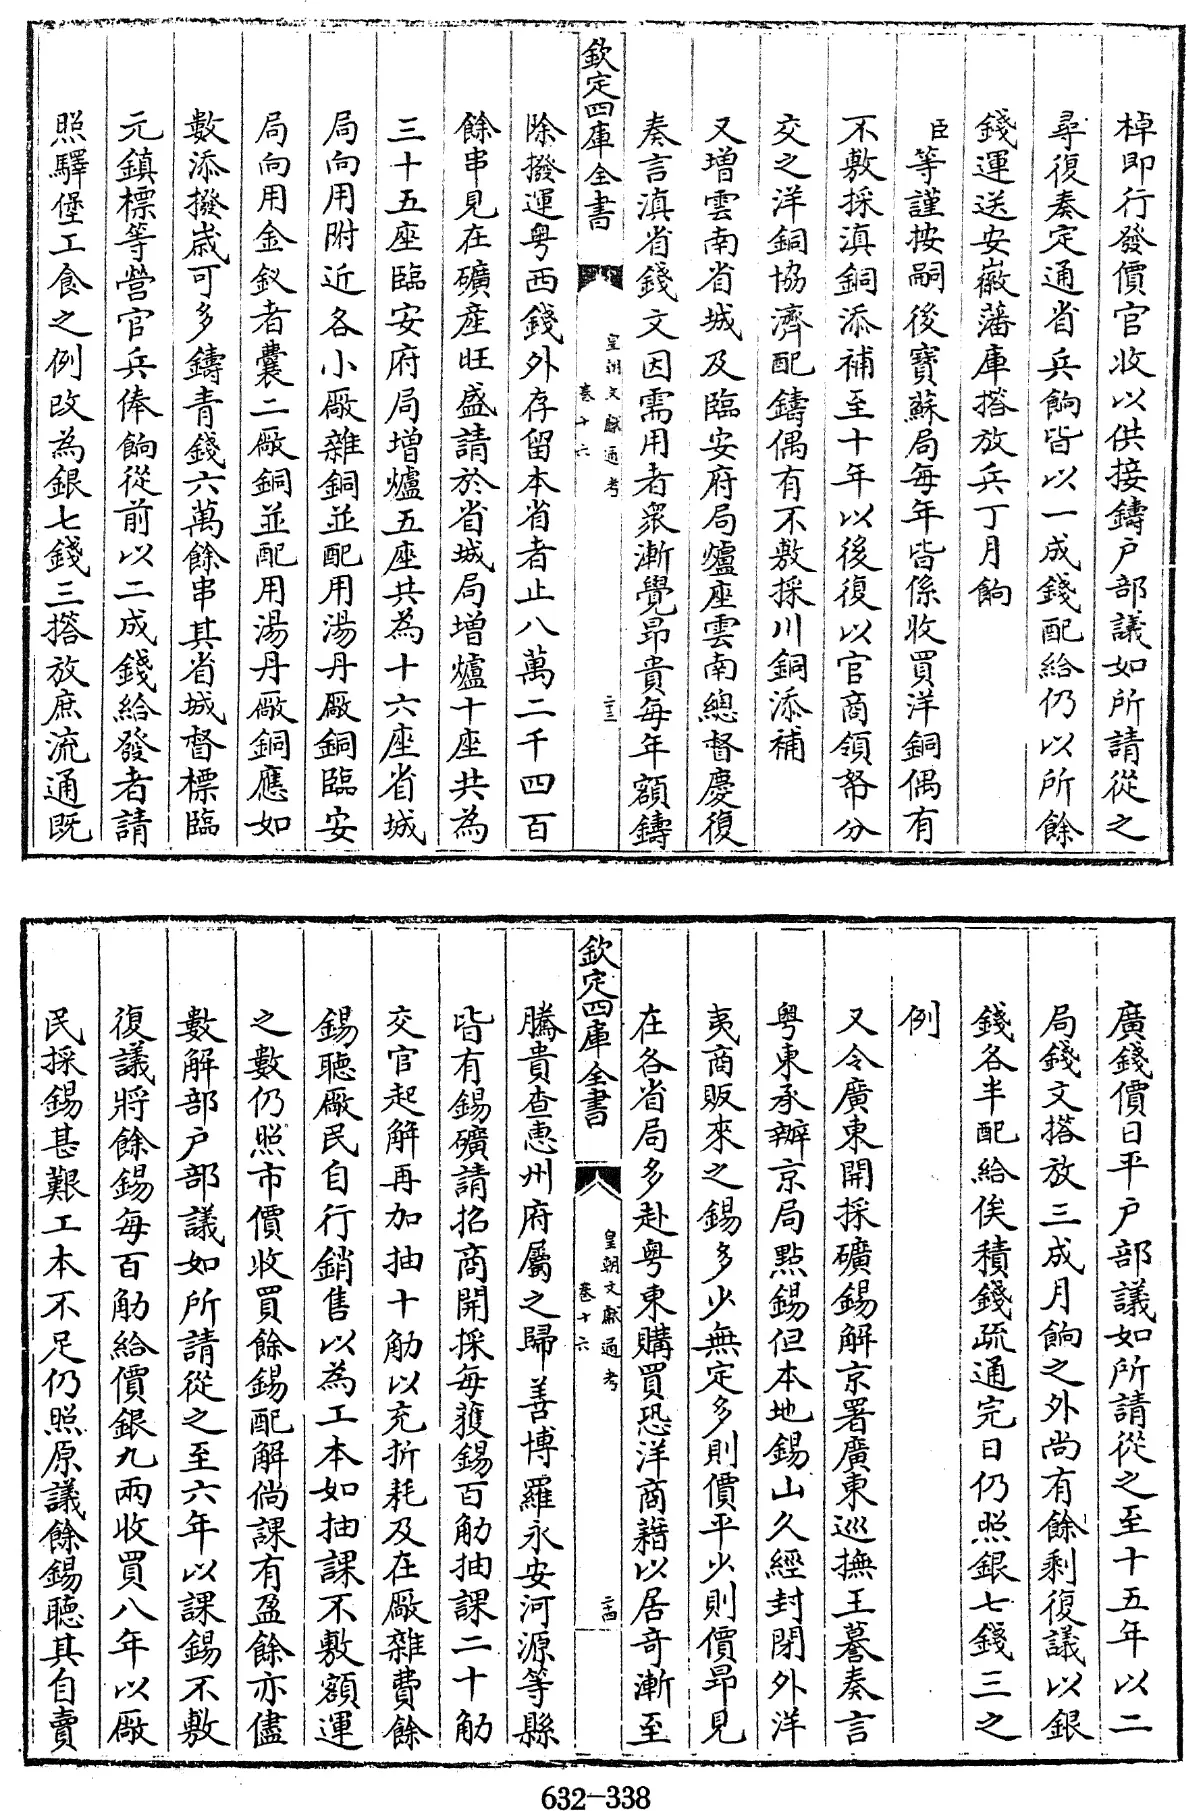 棹即行發價官收以供接鑄户部議如所請從之
尋復奏定通省兵餉皆以一成錢配給仍以所餘
錢運送安徽藩庫搭放兵丁月餉
臣等謹按嗣後寶蘇局每年皆係收買洋銅偶有
不敷採滇銅添補至十年以後復以官商領帑分
交之洋銅協濟配鑄偶有不敷採川銅添補
又增雲南省城及臨安府局爐座雲南總督慶復
奏言滇省錢文因需用者衆漸覺昂貴每年額鑄
欽定四庫全書
皇朝文獻通考
卷十六
二十三
除撥運粤西錢外存留本省者止八萬二千四百
餘串見在礦産旺盛請於省城局增爐十座共為
三十五座臨安府局增爐五座共為十六座省城
局向用附近各小廠雜銅並配用湯丹廠銅臨安
局向用金釵者囊二廠銅並配用湯丹廠銅應如
數添撥歳可多鑄青錢六萬餘串其省城督標臨
元鎮標等營官兵俸餉從前以二成錢給發者請
照驛堡工食之例改為銀七錢三搭放庶流通既
廣錢價日平户部議如所請從之至十五年以二
局錢文搭放三成月餉之外尚有餘剩復議以銀
錢各半配給俟積錢疏通完日仍照銀七錢三之
例
又令廣東開採礦錫解京署廣東巡撫王謩奏言
粤東承辦京局點錫但本地錫山久經封閉外洋
夷商販來之錫多少無定多則價平少則價昂見
在各省局多赴粤東購買恐洋商藉以居奇漸至
欽定四庫全書
皇朝文獻通考
卷十六
二十四
騰貴查惠州府屬之歸善博羅永安河源等縣
皆有錫礦請招商開採每獲錫百觔抽課二十觔
交官起解再加抽十觔以充折耗及在廠雜費餘
錫聽廠民自行銷售以為工本如抽課不敷額運
之數仍照市價收買餘錫配解倘課有盈餘亦儘
數解部户部議如所請從之至六年以課錫不敷
復議將餘錫每百觔給價銀九兩收買八年以廠
民採錫甚艱工本不足仍照原議餘錫聽其自賣
632-338